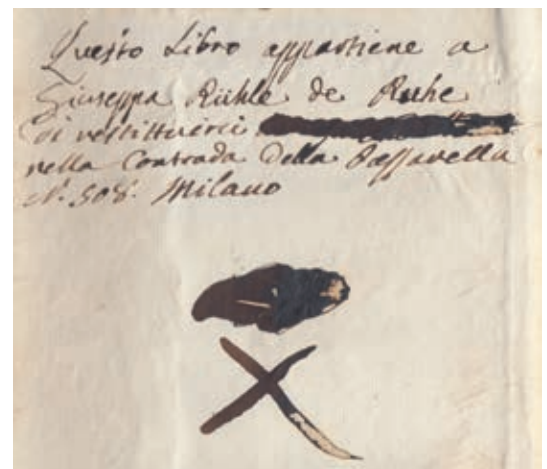 Questo Libro appartiene a
Giuseppa Rühle de Ruhe
di restittuirci
nella Contrada Della Passarella
N.º 508. Milano